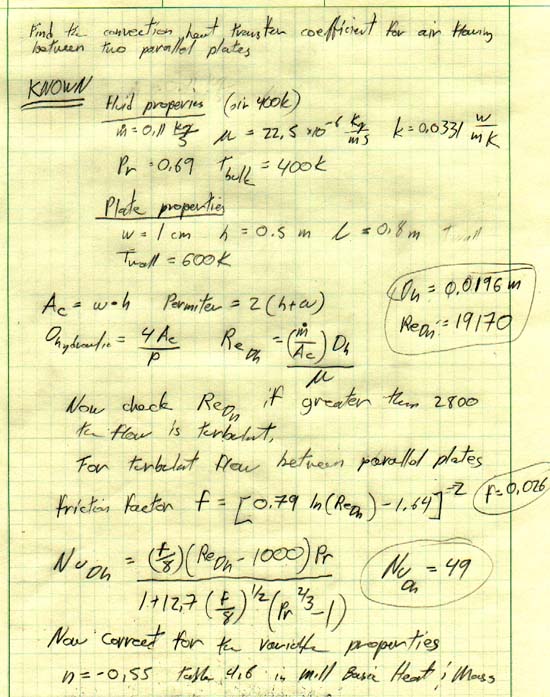 Find the convection heat transfer coefficient for air flowing
between two parallel plates
KNOWN
Fluid properies (air 400k)
ṁ = 0,11 kg/s μ = 22,5 × 10^-6 kg/ms k = 0,0331 W/mK
Pr = 0.69 T_bulk = 400k
Plate properties
w = 1 cm h = 0.5 m L = 0.8 m T wall
Twall = 600K
Ac = w • h Permiter = 2(h+w)
D_h = 0.0196 m
Re_Dh = 19170
D_hydraulic = 4Ac/p Re_Dh = (ṁ/Ac) D_h/μ
Now check Re_Dh if greater than 2800
the flow is turbulant,
For turbulat flow between parallel plates
friction factor f = [0.79 ln(Re_Dh) - 1.64]^-2 f = 0,026
Nu_Dh = (f/8)(Re_Dh - 1000)Pr/1+12,7(f/8)^1/2(Pr^2/3 - 1) Nu_Dh = 49
Now correct for the variable properties
n = -0,55 table 4.6 in mill Basic Heat & Mass